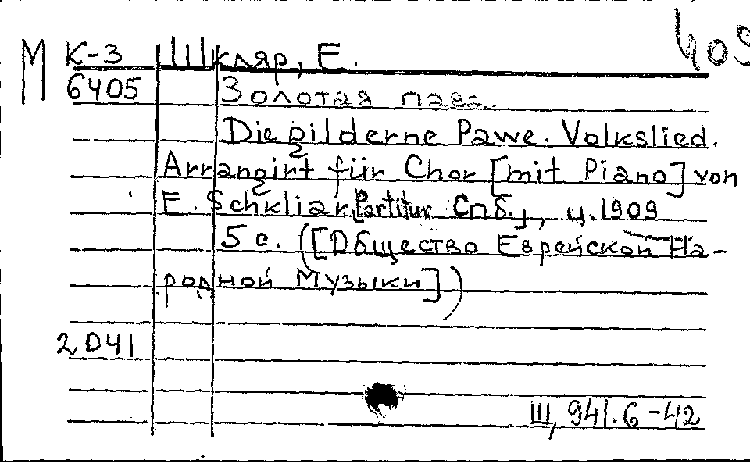 М К-3 Шкляр, Е. 409
6405 Золотая пава.
Die gilderne Pawe. Volkslied.
Arrangirt für Chor [mit Piano] von
E. Schkliar. Partitur Спб., ц. 1909
5 с. ([Общество Еврейской На-
родной Музыки])
2 D41
Ш, 941.6-42